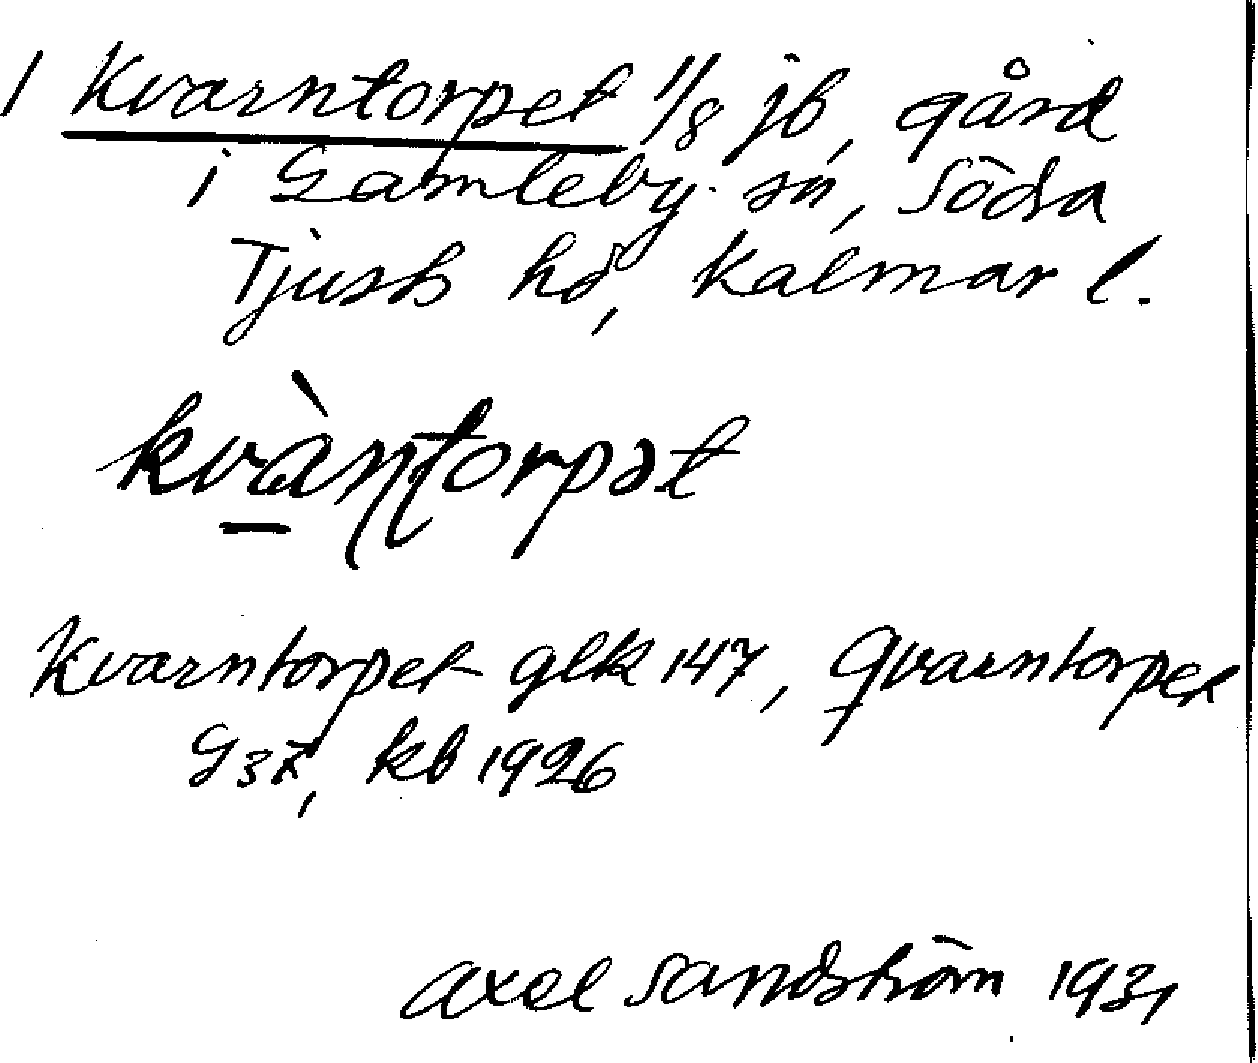 1 Kvarntorpet 1/8 jb, gård
i Gamleby sn, Södra
Tjusts hd, Kalmar l.
kvàn̩torpət
Kvarntorpet glk 147, Qvarntorpet
G 37, kb 1926
Axel Sandström 1931